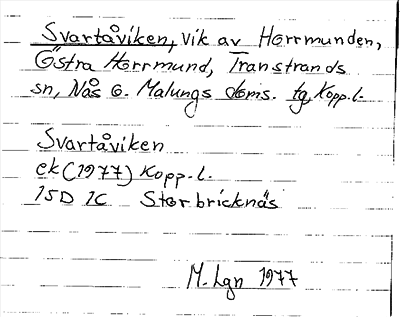 Svartåviken, vik av Horrmunden,
Östra Horrmund, Transtrands
sn, Nås o. Malungs doms. tg, Kopp.l.
Svartåviken
ek (1977) Kopp.l.
15D 1C Storbricknäs
M. Lgn 1977